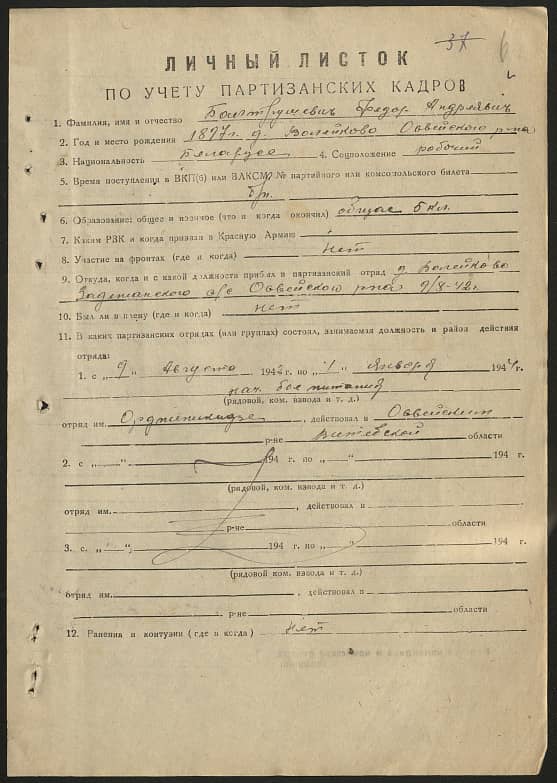 37 6
ЛИЧНЫЙ ЛИСТОК
ПО УЧЕТУ ПАРТИЗАНСКИХ КАДРОВ
1. Фамилия, имя и отчество Болтрушевич Федор Андреевич
2. Год и место рождения 1897 г. д. Волейково Освейского р-на
3. Национальность Беларусс 4. Соцположение рабочий
5. Время поступления в ВКП(б) или ВЛКСМ, № партийного или комсомольского билета
б/п.
6. Образование: общее и военное (что и когда окончил) общее 5 кл.
7. Каким РВК и когда призван в Красную Армию
8. Участие на фронтах (где и когда) нет
9. Откуда, когда и с какой должности прибыл в партизанский отряд д. Волейково
Задежанского с/с Освейского р-на 9/8-42 г.
10. Был ли в плену (где и когда) нет
11. В каких партизанских отрядах (или группах) состоял, занимаемая должность и район действия
отряда:
1. с „9" Августа 1942 г по „1" Января 1944 г.
нач. боепитания
(рядовой, ком. взвода и т. д.)
отряд им. Орджоникидзе, действовал в Освейском
р-не Витебской области
2. с „ " 194 г. по „ " 194 г.
(рядовой, ком. взвода и т. д.)
отряд им. , действовал в
р-не области
3. с „ " 194 г. по „ " 194 г.
(рядовой ком. взвода и т. д.)
отряд им. , действовал в
р-не области
12. Ранения и контузии (где и когда) нет